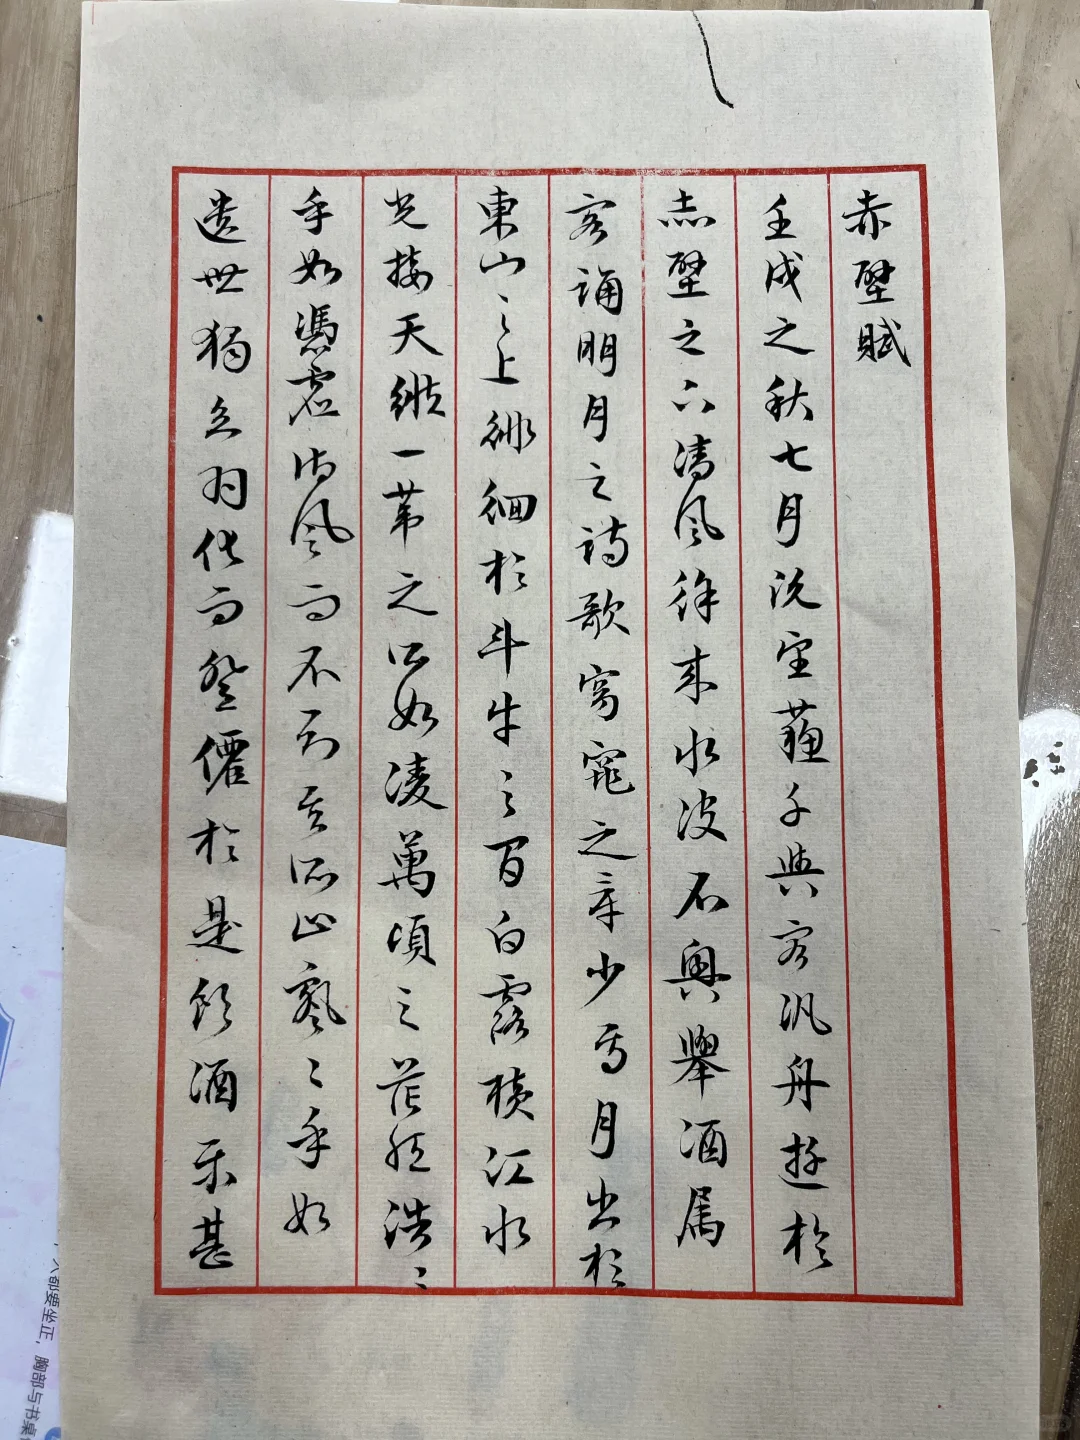 赤壁賦
壬戌之秋七月既望蘇子與客汎舟遊於
赤壁之下清風徐來水波不興舉酒属
客誦明月之詩歌窈窕之章少焉月出於
東山之上徘徊於斗牛之間白露橫江水
光接天縱一葦之所如凌萬頃之茫然浩〻
乎如馮虛御風而不知其所止飄〻乎如
遺世獨立羽化而登僊於是飲酒樂甚
都要坐正，胸部与书桌